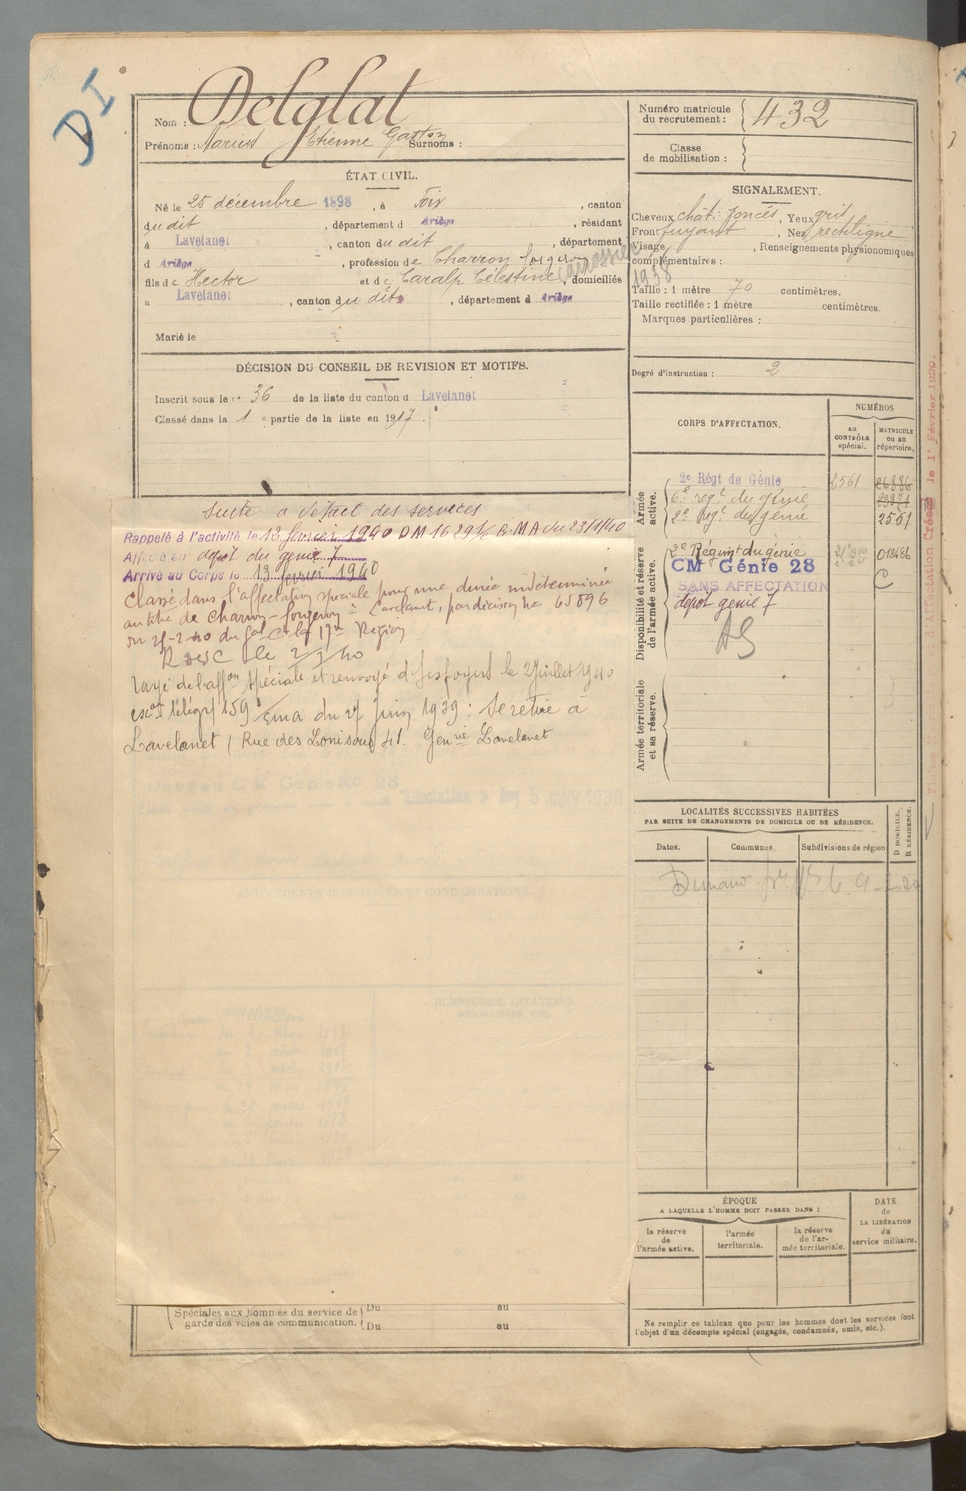 DI
Nom : Delglat
Prénoms : Marius Etienne Gaston Surnoms :
ÉTAT CIVIL.
Né le 25 décembre 1898, à Foix, canton
dudit, département d Ariège, résidant
à Lavelanet, canton dudit, département
d Ariège, profession de Charron forgeron
carrossier 1938
fils de Hector et de Caralp Célestine, domiciliés
à Lavelanet, canton dudit, département d Ariège
Marié le
DÉCISION DU CONSEIL DE REVISION ET MOTIFS.
Inscrit sous le n° 36 de la liste du canton d Lavelanet
Classé dans la 1e partie de la liste en 1917.
Suite à détail des services
Rappelé à l'activité le 13 février 1940 DM 1629 1/4 R.MA du 23/1/40
Affecté au dépôt du génie 7
Arrivé au Corps le 13 février 1940
Classé dans l'affectation spéciale pour une durée indéterminée
au titre de Charron-forgeron à Lavelanet, par décision No 65896
du 25-2-40 du Gal Ct la 17e Région
le 2/3/40
rayé de l'affon spéciale et renvoyé d s foyers le 2 juillet 1940
télégr 159 Ema du 27 juin 1939 : Se retire à
Lavelanet Rue des 41. Genrie Lavelanet
Bureau CM Génie No 28
5 JANV 1938
Spéciales aux hommes du service de garde des voies de communication. Du au
Du au
Numéro matricule du recrutement : 432
Classe de mobilisation :
SIGNALEMENT.
Cheveux chât. foncés, Yeux gris
Front fuyant, Nez rectiligne
Visage , Renseignements physionomiques
complémentaires :
Taille : 1 mètre 70 centimètres.
Taille rectifiée : 1 mètre centimètres.
Marques particulières :
Degré d'instruction : 2
CORPS D'AFFECTATION.
NUMÉROS
au CONTRÔLE spécial.
MATRICULE ou au répertoire.
Armée active.
2e Régt de Génie 2561 26886
6e regt du génie 23371
2e Regt du génie 2551
Disponibilité et réserve de l'armée active.
2e Régimt du génie 018486
CM Génie 28 C
SANS AFFECTATION
dépôt génie 7
AS
Armée territoriale et sa réserve.
LOCALITÉS SUCCESSIVES HABITÉES
PAR SUITE DE CHANGEMENTS DE DOMICILE OU DE RÉSIDENCE.
Dates.
Communes.
Subdivisions de région
D DOMICILE.
R RÉSIDENCE.
ÉPOQUE
A LAQUELLE L'HOMME DOIT PASSER DANS :
la réserve de l'armée active.
l'armée territoriale.
la réserve de l'armée territoriale.
DATE de LA LIBÉRATION du service militaire.
Ne remplir ce tableau que pour les hommes dont les services font
l'objet d'un décompte spécial (engagés, condamnés, omis, etc.).
d'Affectation Créée le 1r Février 1920.